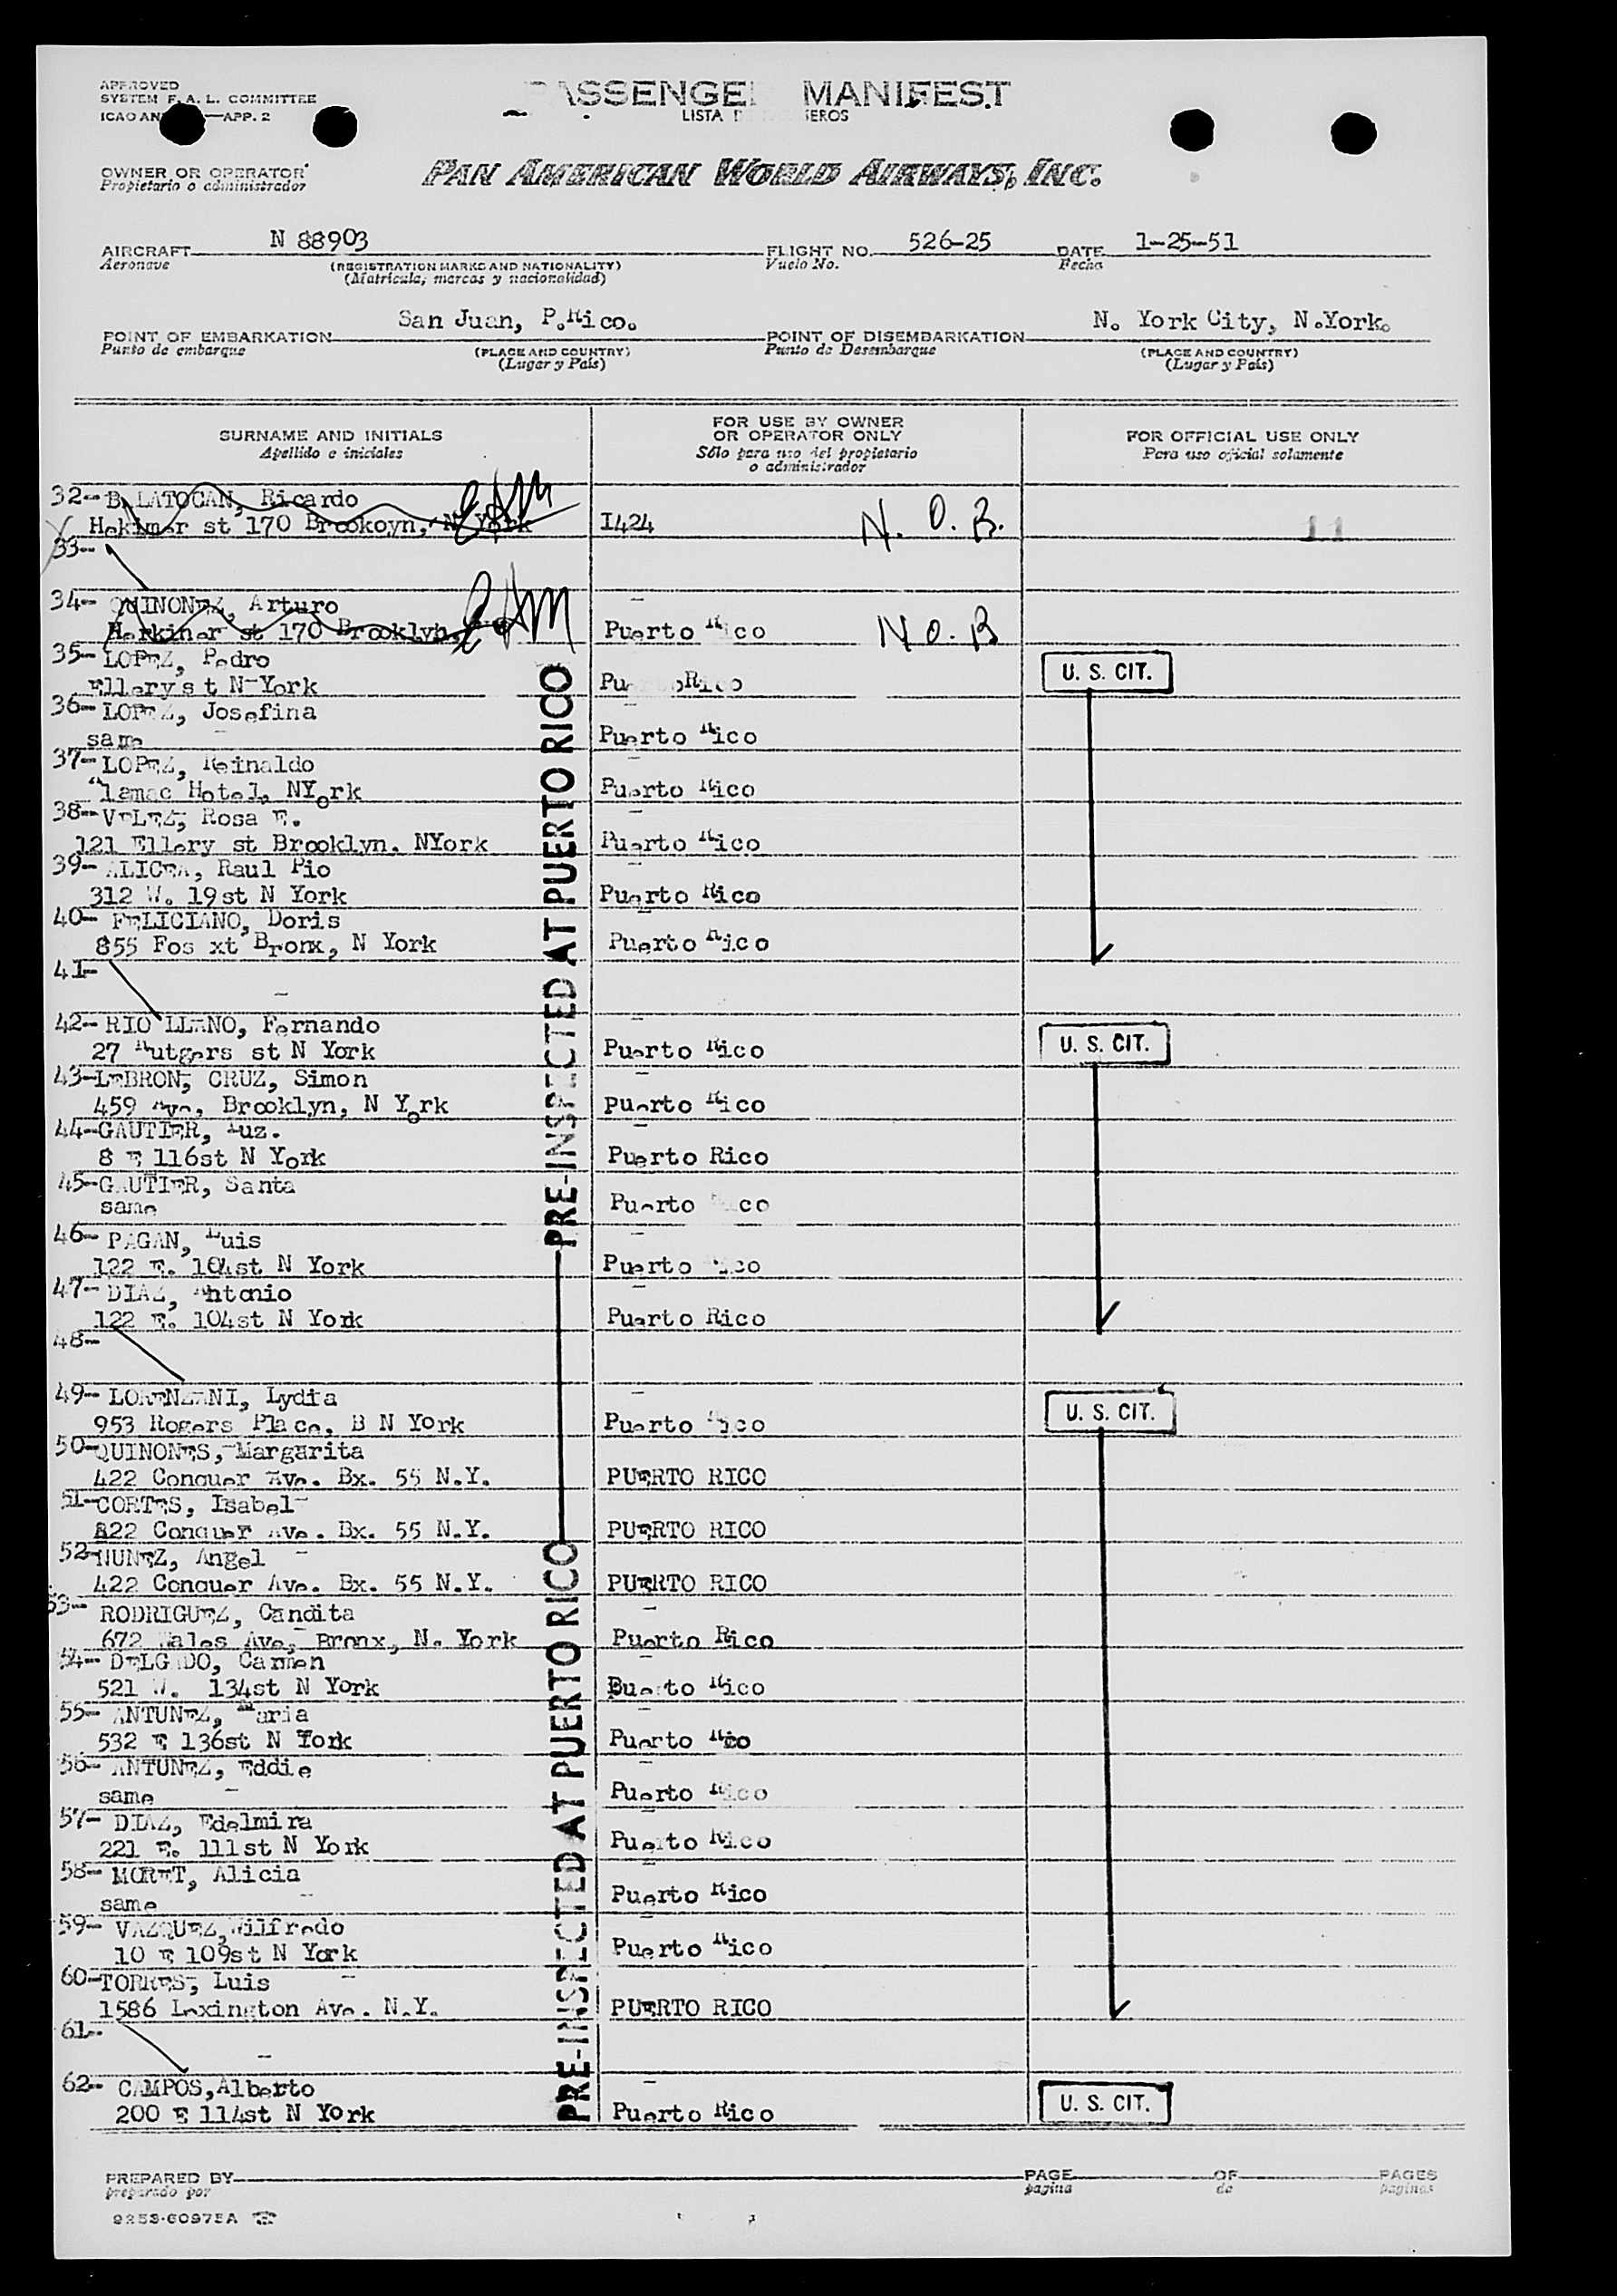 APPROVED
SYSTEM F. A. L. COMMITTEE
ICAO AN —APP. 2
PASSENGER MANIFEST
LISTA EROS
OWNER OR OPERATOR
Propietario o administrador
PAN AMERICAN WORLD AIRWAYS, INC.
AIRCRAFT N 88903 FLIGHT NO. 526-25 DATE 1-25-51
Aeronave (REGISTRATION MARKS AND NATIONALITY) Vuelo No. Fecha
(Matrícula, marcas y nacionalidad)
POINT OF EMBARKATION San Juan, P.Rico. POINT OF DISEMBARKATION N. York City, N.York.
Punto de embarque (PLACE AND COUNTRY) Punto de Desembarque (PLACE AND COUNTRY)
(Lugar y País) (Lugar y País)
SURNAME AND INITIALS FOR USE BY OWNER OR OPERATOR ONLY FOR OFFICIAL USE ONLY
Apellido e iniciales Sólo para uso del propietario o administrador Para uso oficial solamente
32-- BALATOCAN, Ricardo
Hekimer st 170 Brookoyn, N York I424 N. O. B. 11
33--
34- QUINONEZ, Arturo
Herkiner st 170 Brooklyn, Puerto Rico N.O.B
35- LOPEZ, Pedro U. S. CIT.
Ellery s t N-York Puerto Rico
36- LOPEZ, Josefina
same Puerto Rico
37- LOPEZ, Reinaldo
Alamac Hotel, NYork Puerto Rico
38-- VELEZ, Rosa E.
121 Ellery st Brooklyn. NYork Puerto Rico
39- ALICEA, Raul Pio
312 W. 19st N York Puerto Rico
40- FELICIANO, Doris
855 Fos xt Bronx, N York Puerto Rico
41-
42- RIO LLANO, Fernando U. S. CIT.
27 Rutgers st N York Puerto Rico
43-LEBRON, CRUZ, Simon
459 Ave, Brooklyn, N York Puerto Rico
44-GAUTIER, Luz.
8 E 116st N York Puerto Rico
45-GAUTIER, Santa
same Puerto Rico
46- PAGAN, Luis
122 E. 104st N York Puerto Rico
47- DIAZ, Antonio
122 E. 104st N York Puerto Rico
48--
49- LORENZANI, Lydia U. S. CIT.
953 Rogers Place, B N York Puerto Rico
50-QUINONES, Margarita
422 Conquer Ave. Bx. 55 N.Y. PUERTO RICO
51-CORTES, Isabel
822 Conquer Ave. Bx. 55 N.Y. PUERTO RICO
52-NUNEZ, Angel
422 Conquer Ave. Bx. 55 N.Y. PUERTO RICO
53- RODRIGUEZ, Candita
672 Wales Ave, Bronx, N. York Puerto Rico
54- DELGADO, Carmen
521 W. 134st N York Buerto Rico
55- ANTUNEZ, Maria
532 E 136st N York Puerto Rico
56- ANTUNEZ, Eddie
same Puerto Rico
57- DIAZ, Edelmira
221 E. 111st N York Puerto Rico
58- MORET, Alicia
same Puerto Rico
59- VAZQUEZ, Wilfredo
10 E 109st N York Puerto Rico
60-TORRES, Luis
1586 Lexington Ave. N.Y. PUERTO RICO
61--
62- CAMPOS, Alberto U. S. CIT.
200 E 114st N York Puerto Rico
PRE-INSPECTED AT PUERTO RICO
PRE-INSPECTED AT PUERTO RICO
PREPARED BY PAGE OF PAGES
preparado por pagina de paginas
9253-60975A